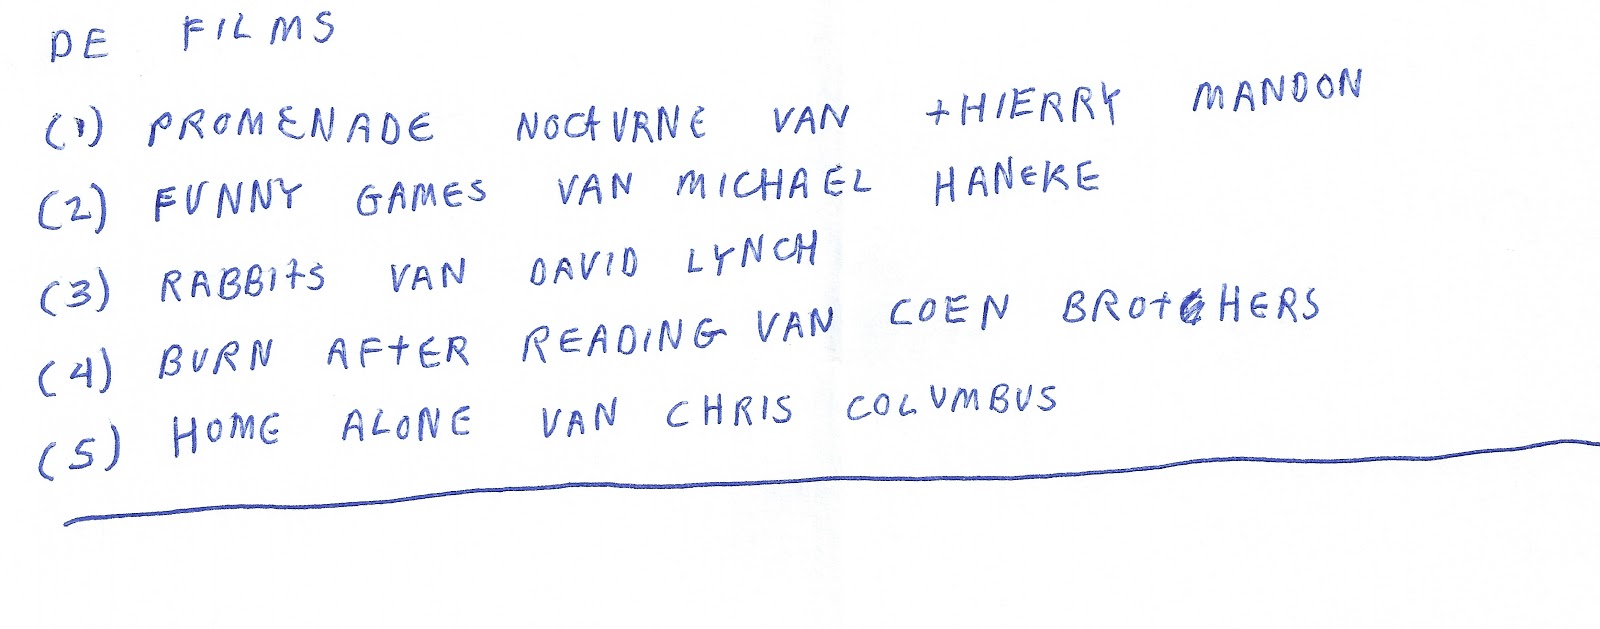 DE FILMS
(1) PROMENADE NOCTURNE VAN THIERRY MANDON
(2) FUNNY GAMES VAN MICHAEL HANEKE
(3) RABBITS VAN DAVID LYNCH
(4) BURN AFTER READING VAN COEN BROTHERS
(5) HOME ALONE VAN CHRIS COLUMBUS